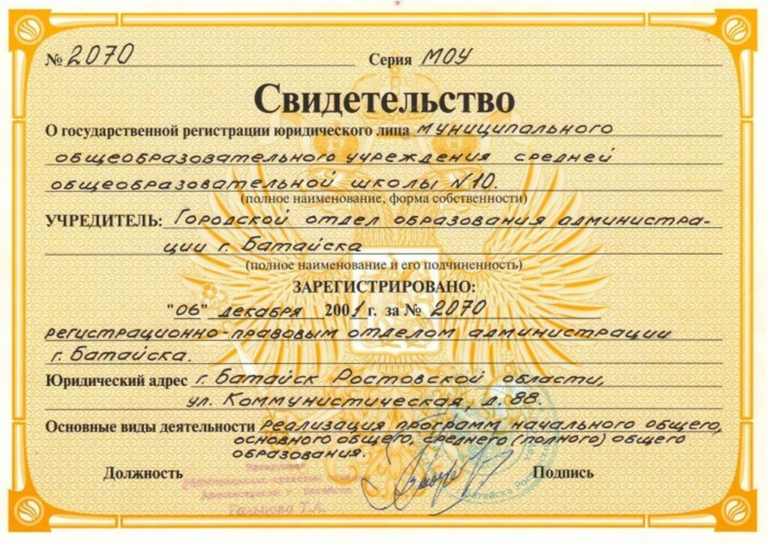 № 2070 Серия МОУ
Свидетельство
О государственной регистрации юридического лица муниципального
общеобразовательного учреждения средней
общеобразовательной школы №10.
(полное наименование, форма собственности)
УЧРЕДИТЕЛЬ: Городской отдел образования администра-
ции г. Батайска
(полное наименование и его подчиненность)
ЗАРЕГИСТРИРОВАНО:
"06" декабря 2001 г. за № 2070
регистрационно-правовым отделом администрации
г. Батайска.
Юридический адрес г. Батайск Ростовской области,
ул. Коммунистическая, д. 88.
Основные виды деятельности Реализация программ начального общего,
основного общего, среднего (полного) общего
образования.
Должность Подпись
Администрации г. Батайска
Гальцова Т.А.